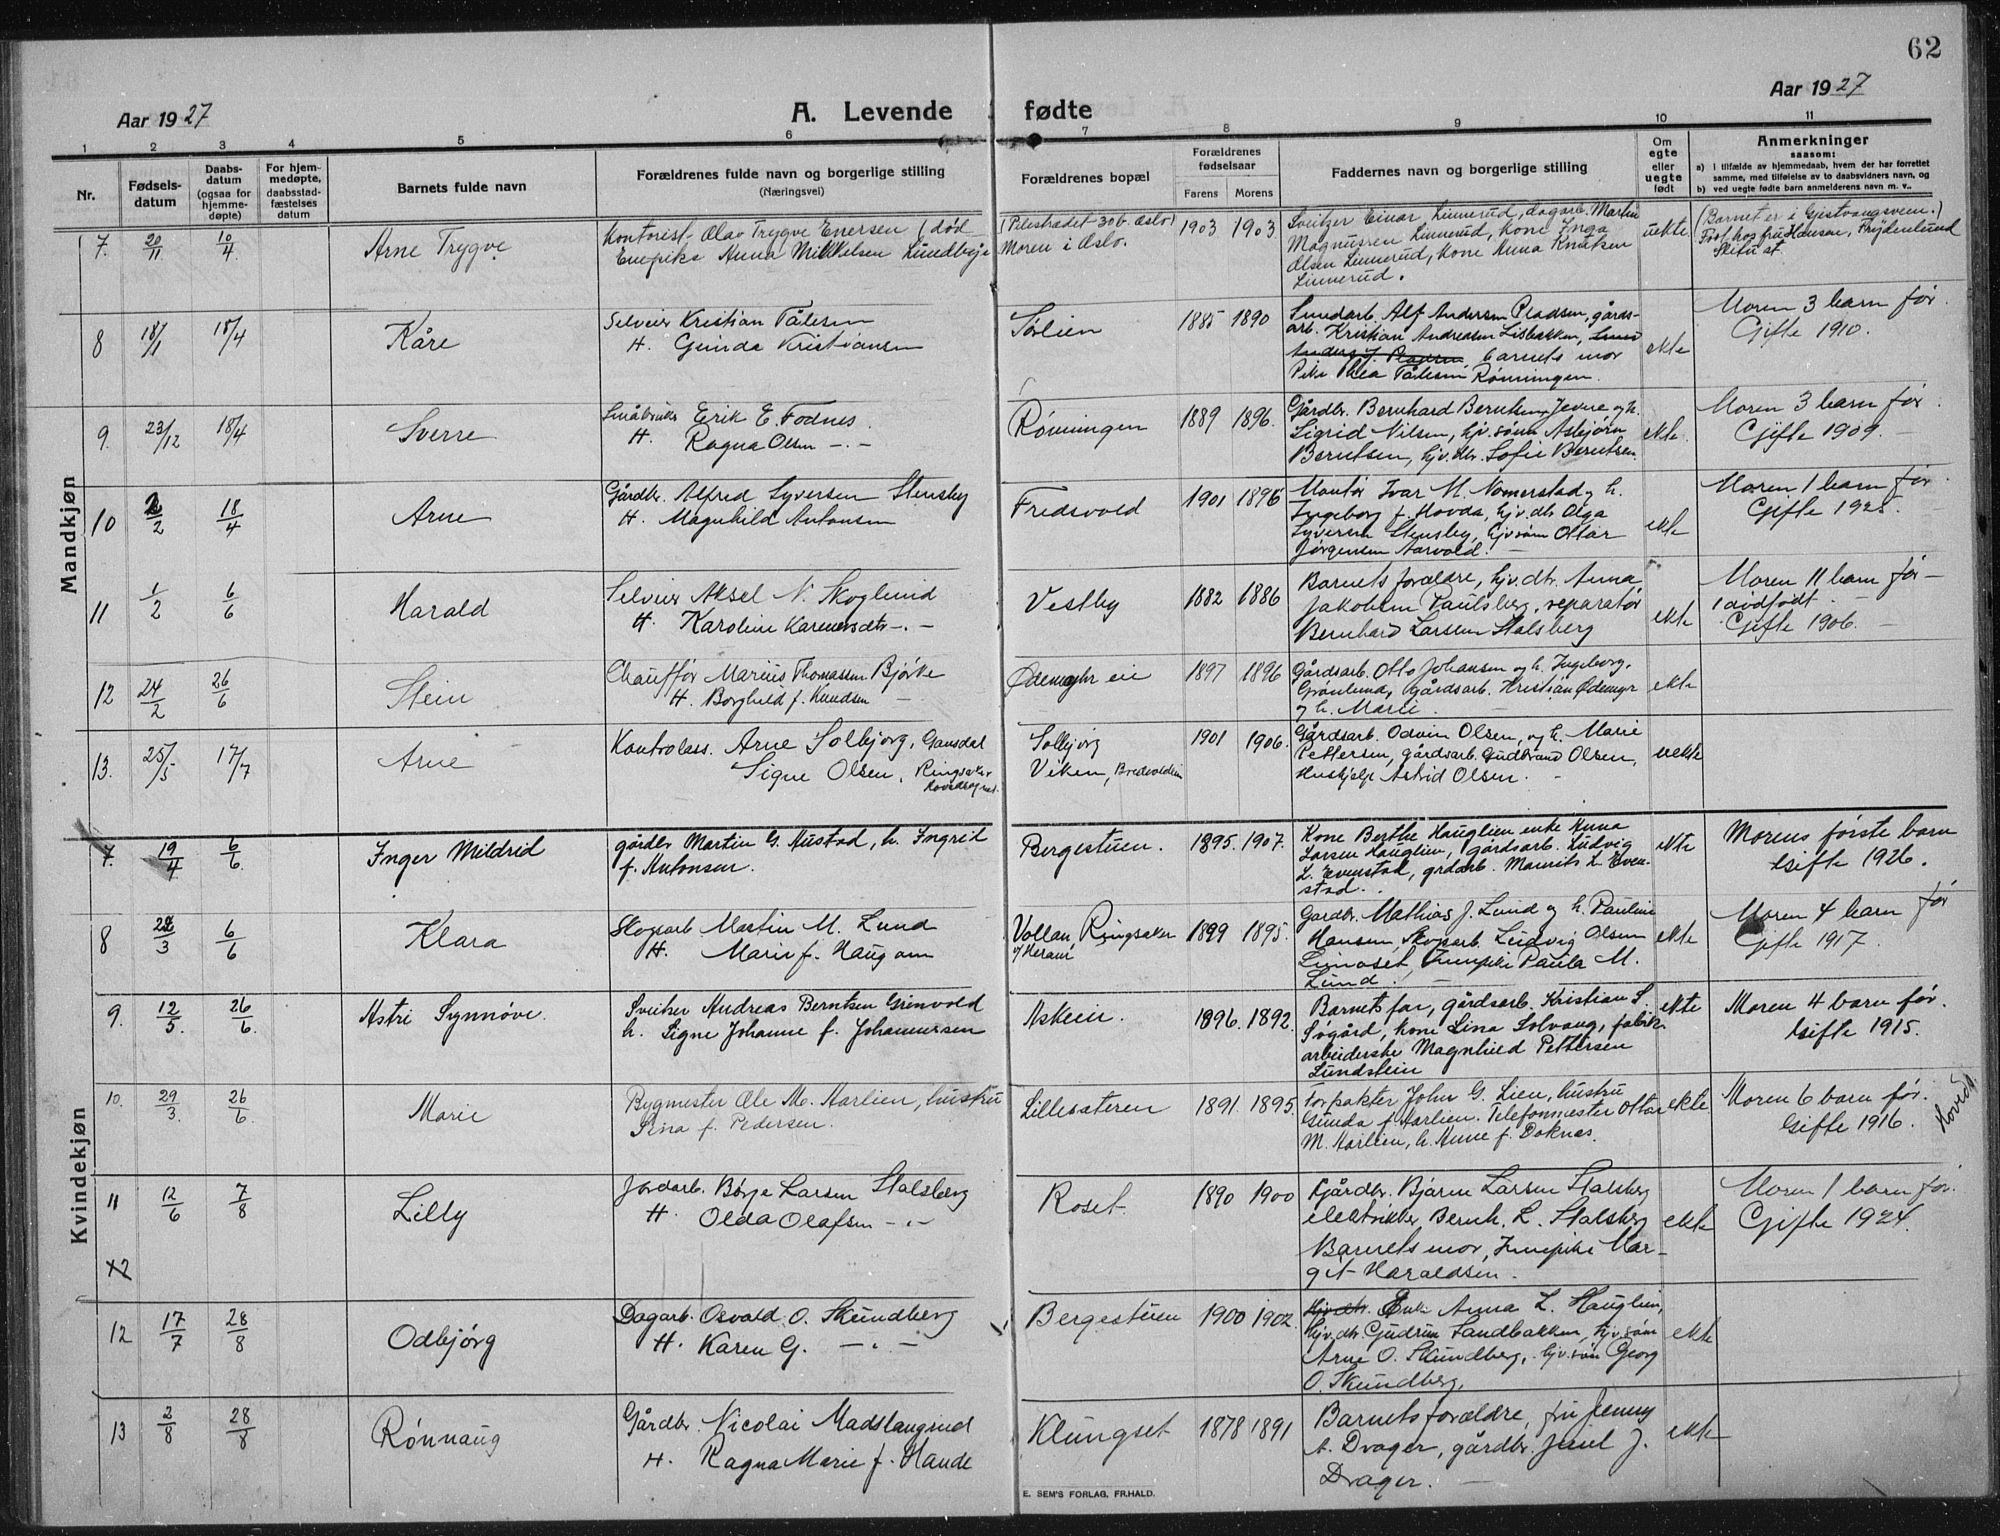 62
Aar 1927
A. Levende fødte
Aar 1927
1 2 3 4 5 6 7 8 9 10 11
Nr.
Fødsels-
datum
Daabs-
datum
(ogsaa for
hjemme-
døpte)
For hjem-
medøpte,
daabsstad-
fæstelses
datum
Barnets fulde navn
Forældrenes fulde navn og borgerlige stilling
(Næringsvei)
Forældrenes bopæl
Forældrenes
fødselsaar
Farens Morens
Faddernes navn og borgerlige stilling
Om
egte
eller
uegte
født
Anmerkninger
saasom:
a) i tilfælde av hjemmedaab, hvem der har forrettet
samme, med tilføielse av to daabsvidners navn, og
b) ved uegte fødte barn anmelderens navn m. v..
Mandkjøn
7. 20/11 10/4 Arne Trygve
Kontorist Olav Trygve Enersen (død
Enepike Anna Mikkelsen Lundbye
(Pilestrædet 30b. Oslo)
Moren i Oslo.
1903 1903
Sveitzer Einar Linnerud, dagarb. Martin
Magnussen Linnerud, kone Inga
Olsen Linnerud, kone Anna Knutsen
Linnerud.
uekte
(Barnet er i Gjestvangsveien.)
Fost. hos fru Hansen, Frydenlund
8 18/1 18/4 Kåre
Selveier Kristian Tålesen
H. Gunda Kristiansen
Sølien
1885 1890
Sundarb. Alf Andersen Pladsen, gårds-
arb. Kristian Andreasen Lisbakken,
Anders J. Pladsen, barnets mor
Pike Thea Tålesen Rønningen.
ekte
Moren 3 barn før.
Gifte 1910.
9 23/12 18/4 Sverre
Småbruker Erik E. Fodnes.
H. Ragna Olsen -.-
Rønningen
1889 1896.
Gårdbr. Bernhard Berntsen Jevne og h.
Sigrid Nilsen, hjv. sønn Asbjørn
Berntsen, hjv. dtr. Sofie Berntsen.
ekte.
Moren 3 barn før.
Gifte 1909.
10 2/2 18/4 Arne
Gårdbr. Alfred Syversen Stensby
H. Magnhild Antonsen
Fredsvold
1901 1896
Montør Ivar M. Nomerstad og h.
Ingeborg f. Hovda, hjv. dtr. Olga
Syversen Stensby, hjv søn Ottar
Jørgensen Aarvold.
ekte
Moren 1 barn før
Gifte 1925.
11 1/2 6/6 Harald
Selveier Aksel N. Skoglund
H. Karoline Karenersdtr -.-
Vestby
1882 1886
Barnets forældre, hjv. dtr. Anna
Jakobsen Paulsberg, reparatør
Bernhard Larsen Stalsberg
ekte
Moren 11 barn før -
1 dødfødt.
Gifte 1906.
12 24/2 26/6 Stein
Chauffør Marius Thomassen Bjørke
H. Borghild f. Knudsen
Ødemaghr eie
1897 1896
Gårdsarb. Otto Johansen og h. Ingeborg,
Grønlund, gårdsarb. Kristian Ødemgr
og h. Marie.
ekte
13. 25/5 17/7 Arne
Kontrolass. Arne Solbjørg, Gausdal
Signe Olsen, Ringsaker
hovedsogn.
Solbjørg
Viken, Bredvoldeie
1901 1906.
Gårdsarb. Odvin Olsen, og h. Marie
Pettersen, gårdsarb. Gudbrand Olsen,
Hushjelp Astrid Olsen.
uekte
Kvindekjøn
7. 19/4 6/6 Inger Mildrid
gårdbr Martin G. Hustad, h. Ingrid
f. Antonsen.
Bergestuen.
1895. 1907.
Kone Berthe Hauglien enke Anna
Larsen Hauglien, gårdsarb. Ludvig
L. Evenstad, grdarb. Maurits L. Even-
stad.
ekte
Morens første barn
Gifte 1926.
8 22/3 6/6 Klara
Skogsarb Martin M. Lund
H. Marie f. Haugom
Vollan Ringsaker
1899 1895.
Gardbr. Mathias J. Lund og h. Pauline
Hansen, Skogsarb. Ludvig Olsen
Limoset, Tusenpike Paula M.
Lund.
ekte
Moren 4 barn før
Gifte 1917.
9. 12/5. 26/6. Astri Synnøve.
Sveitser Andreas Berntsen Grønvold
h. Signe Johanne f. Johannessen
Askeie.
1896. 1892.
Barnets far, gårdsarb. Kristian S.
Søgård, kone Lina Solvang, fabrik-
arbeiderske Magnhild Pettersen
Lundstein
ekte
Moren 4 barn før.
Gifte 1915.
10. 29/3. 26/6. Marie
Bygmester Ole M. Aarlien, hustru
Sina f. Pedersen.
Lillesæteren
1891. 1895.
Forpakter John G. Lien, hustru
Gunda f. Aarlien. Telefonmester Ottar
M. Aarlien, h. Anne f. Doknæs.
ekte
Moren 6 barn før.
Gifte 1916.
11 12/6 7/8 Lilly
Jordarb. Børje Larsen Stalsberg
H. Olda Olafsen -.-
Roset.
1890 1900
Gårdbr. Bjarne Larsen Stalsberg
elektriker Bernh. L. Stalsberg
Barnets mor, Tusenpike Mar-
git Haraldsen.
ekte
Moren 1 barn før.
Gifte 1924.
12 17/7 28/8 Odbjørg
Dagarb. Osvald O. Skundberg
H. Karen G. -.-
Bergestuen
1900 1902.
Hjv. dtr. Enke Anna L. Hauglien,
hjv. dtr. Gudrun Sandbakken, hjv. søn
Arne O. Skundberg, hjv. søn Georg
O. Skundberg.
ekte
13 2/8 28/8 Rønnaug
Gårdbr. Nicolai Madslangrud
H. Ragna Marie f. Haude
Klungset
1878 1891
Barnets forældre, fru Jenny
A. Drager, gårdbr. Juul J.
Drager.
ekte
E. SEM'S FORLAG, FR.HALD.